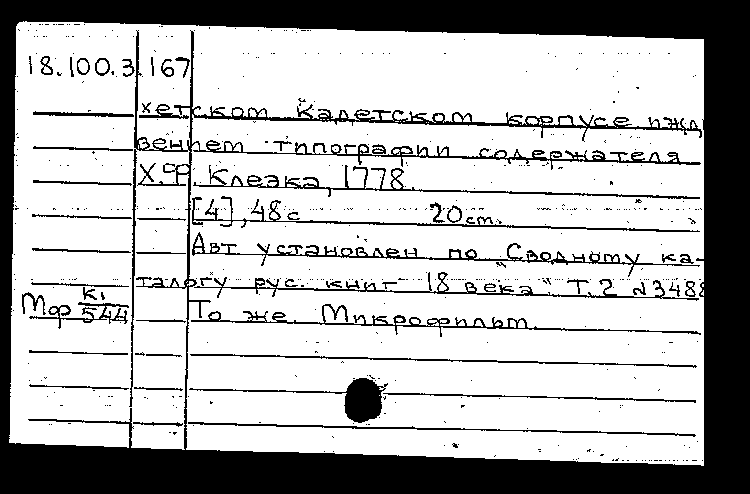 18.100.3.167
хетском Кадетском корпусе ижд
вением типографии содержателя
Х.Ф. Клеэка, 1778.
[4], 48 с 20 см.
Авт установлен по "Сводному ка-
талогу рус. книг 18 века" Т. 2 №3488
Мор К1/544 То же. Микрофильм.